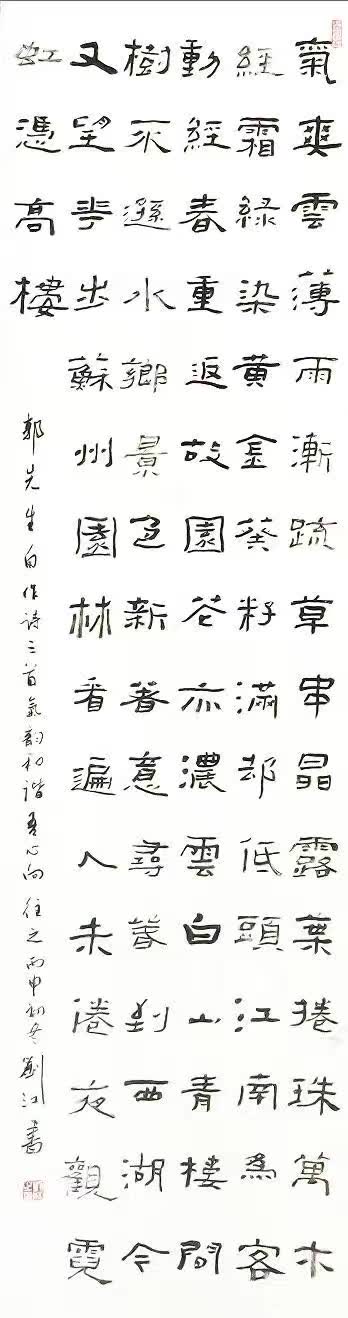 氣爽雲薄雨漸疏草串晶露葉捲珠萬木
經霜綠染黃金葵籽滿却低頭江南為客
動經春重返故園花亦濃雲白山青樓間
樹不遜水鄉景色新著意尋到西湖今
又望步蘇州園林看遍人未倦夜觀霓
虹憑高樓
郭先生自作詩三首氣韵和諧吾心向往之丙申初冬劉江書